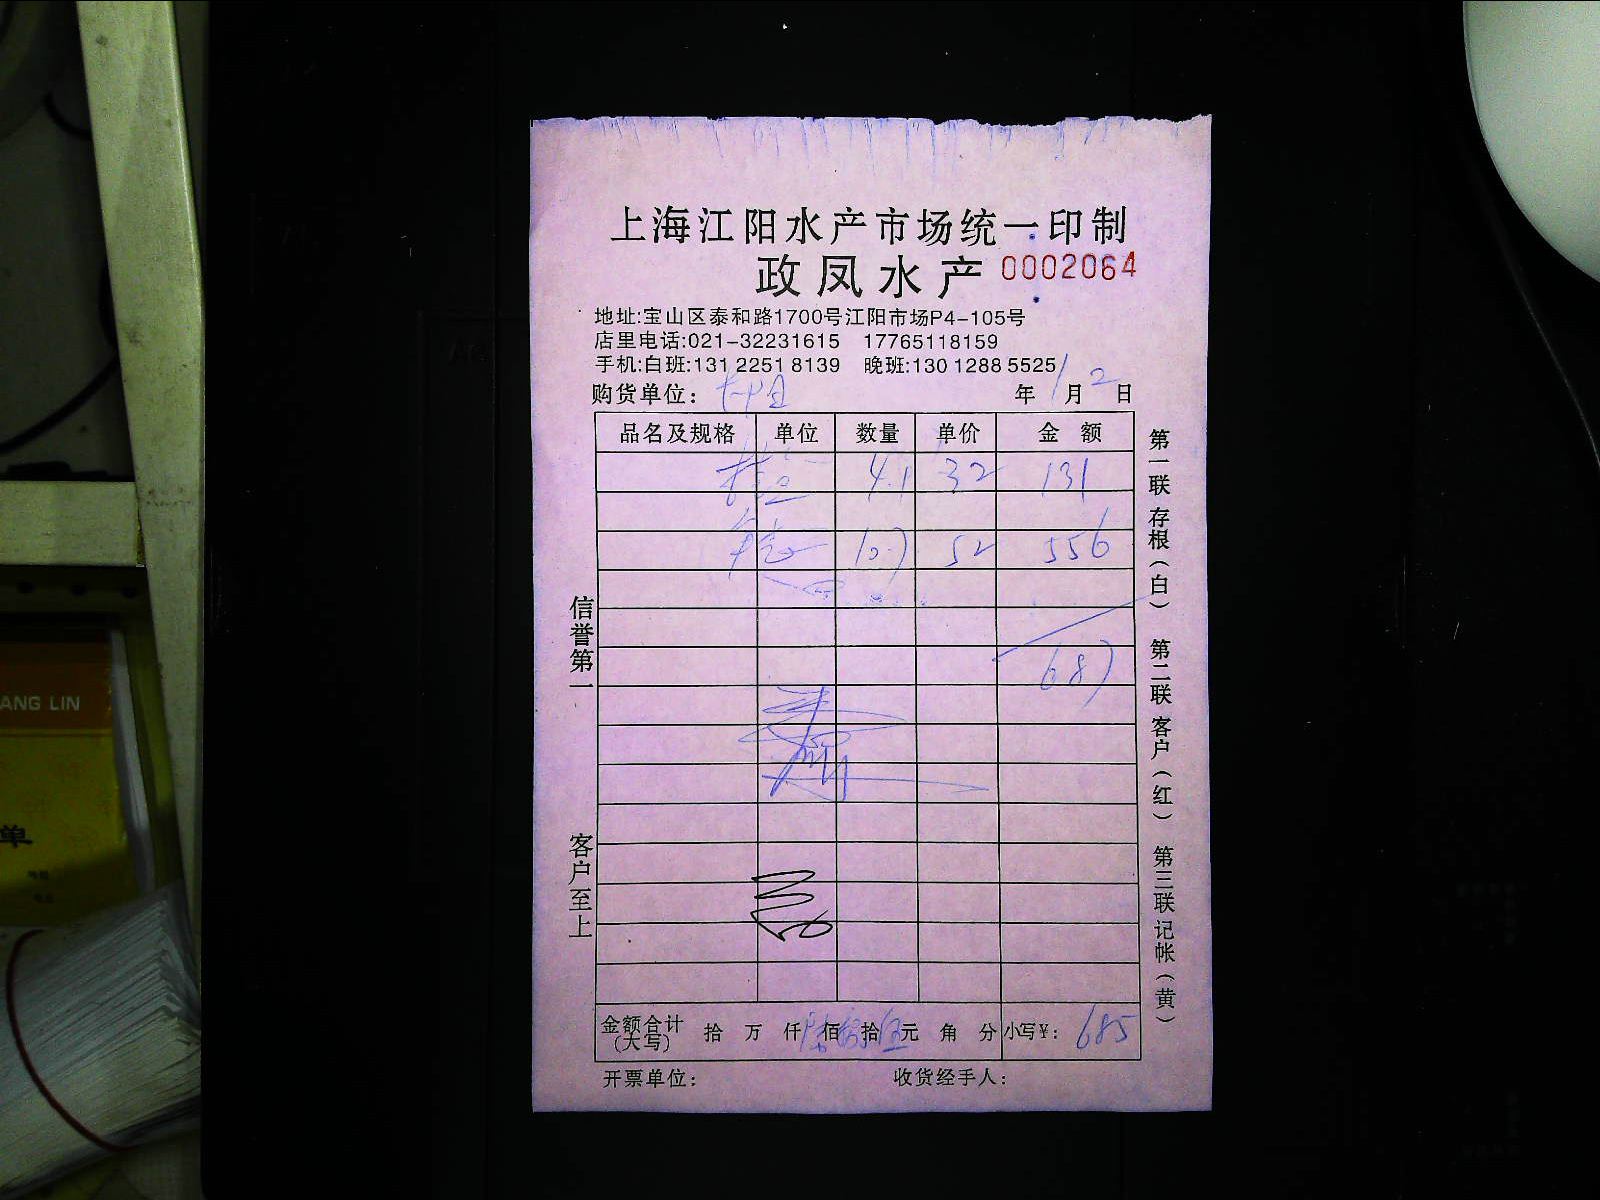 上海江阳水产市场统一印制
政凤水产 0002064
地址:宝山区泰和路1700号江阳市场P4-105号
店里电话:021-32231615 17765118159
手机:白班:131 2251 8139 晚班:130 1288 5525
购货单位: 年 1 月 2 日
品名及规格 单位 数量 单价 金 额
4.1 32 131
10.7 52 556
687
金额合计(大写) 拾 万 仟 陆 佰 捌 拾 伍 元 角 分 小写¥: 685
开票单位: 收货经手人:
信誉第一
客户至上
第一联 存根(白) 第二联 客户(红) 第三联 记帐(黄)
ANG LIN
单